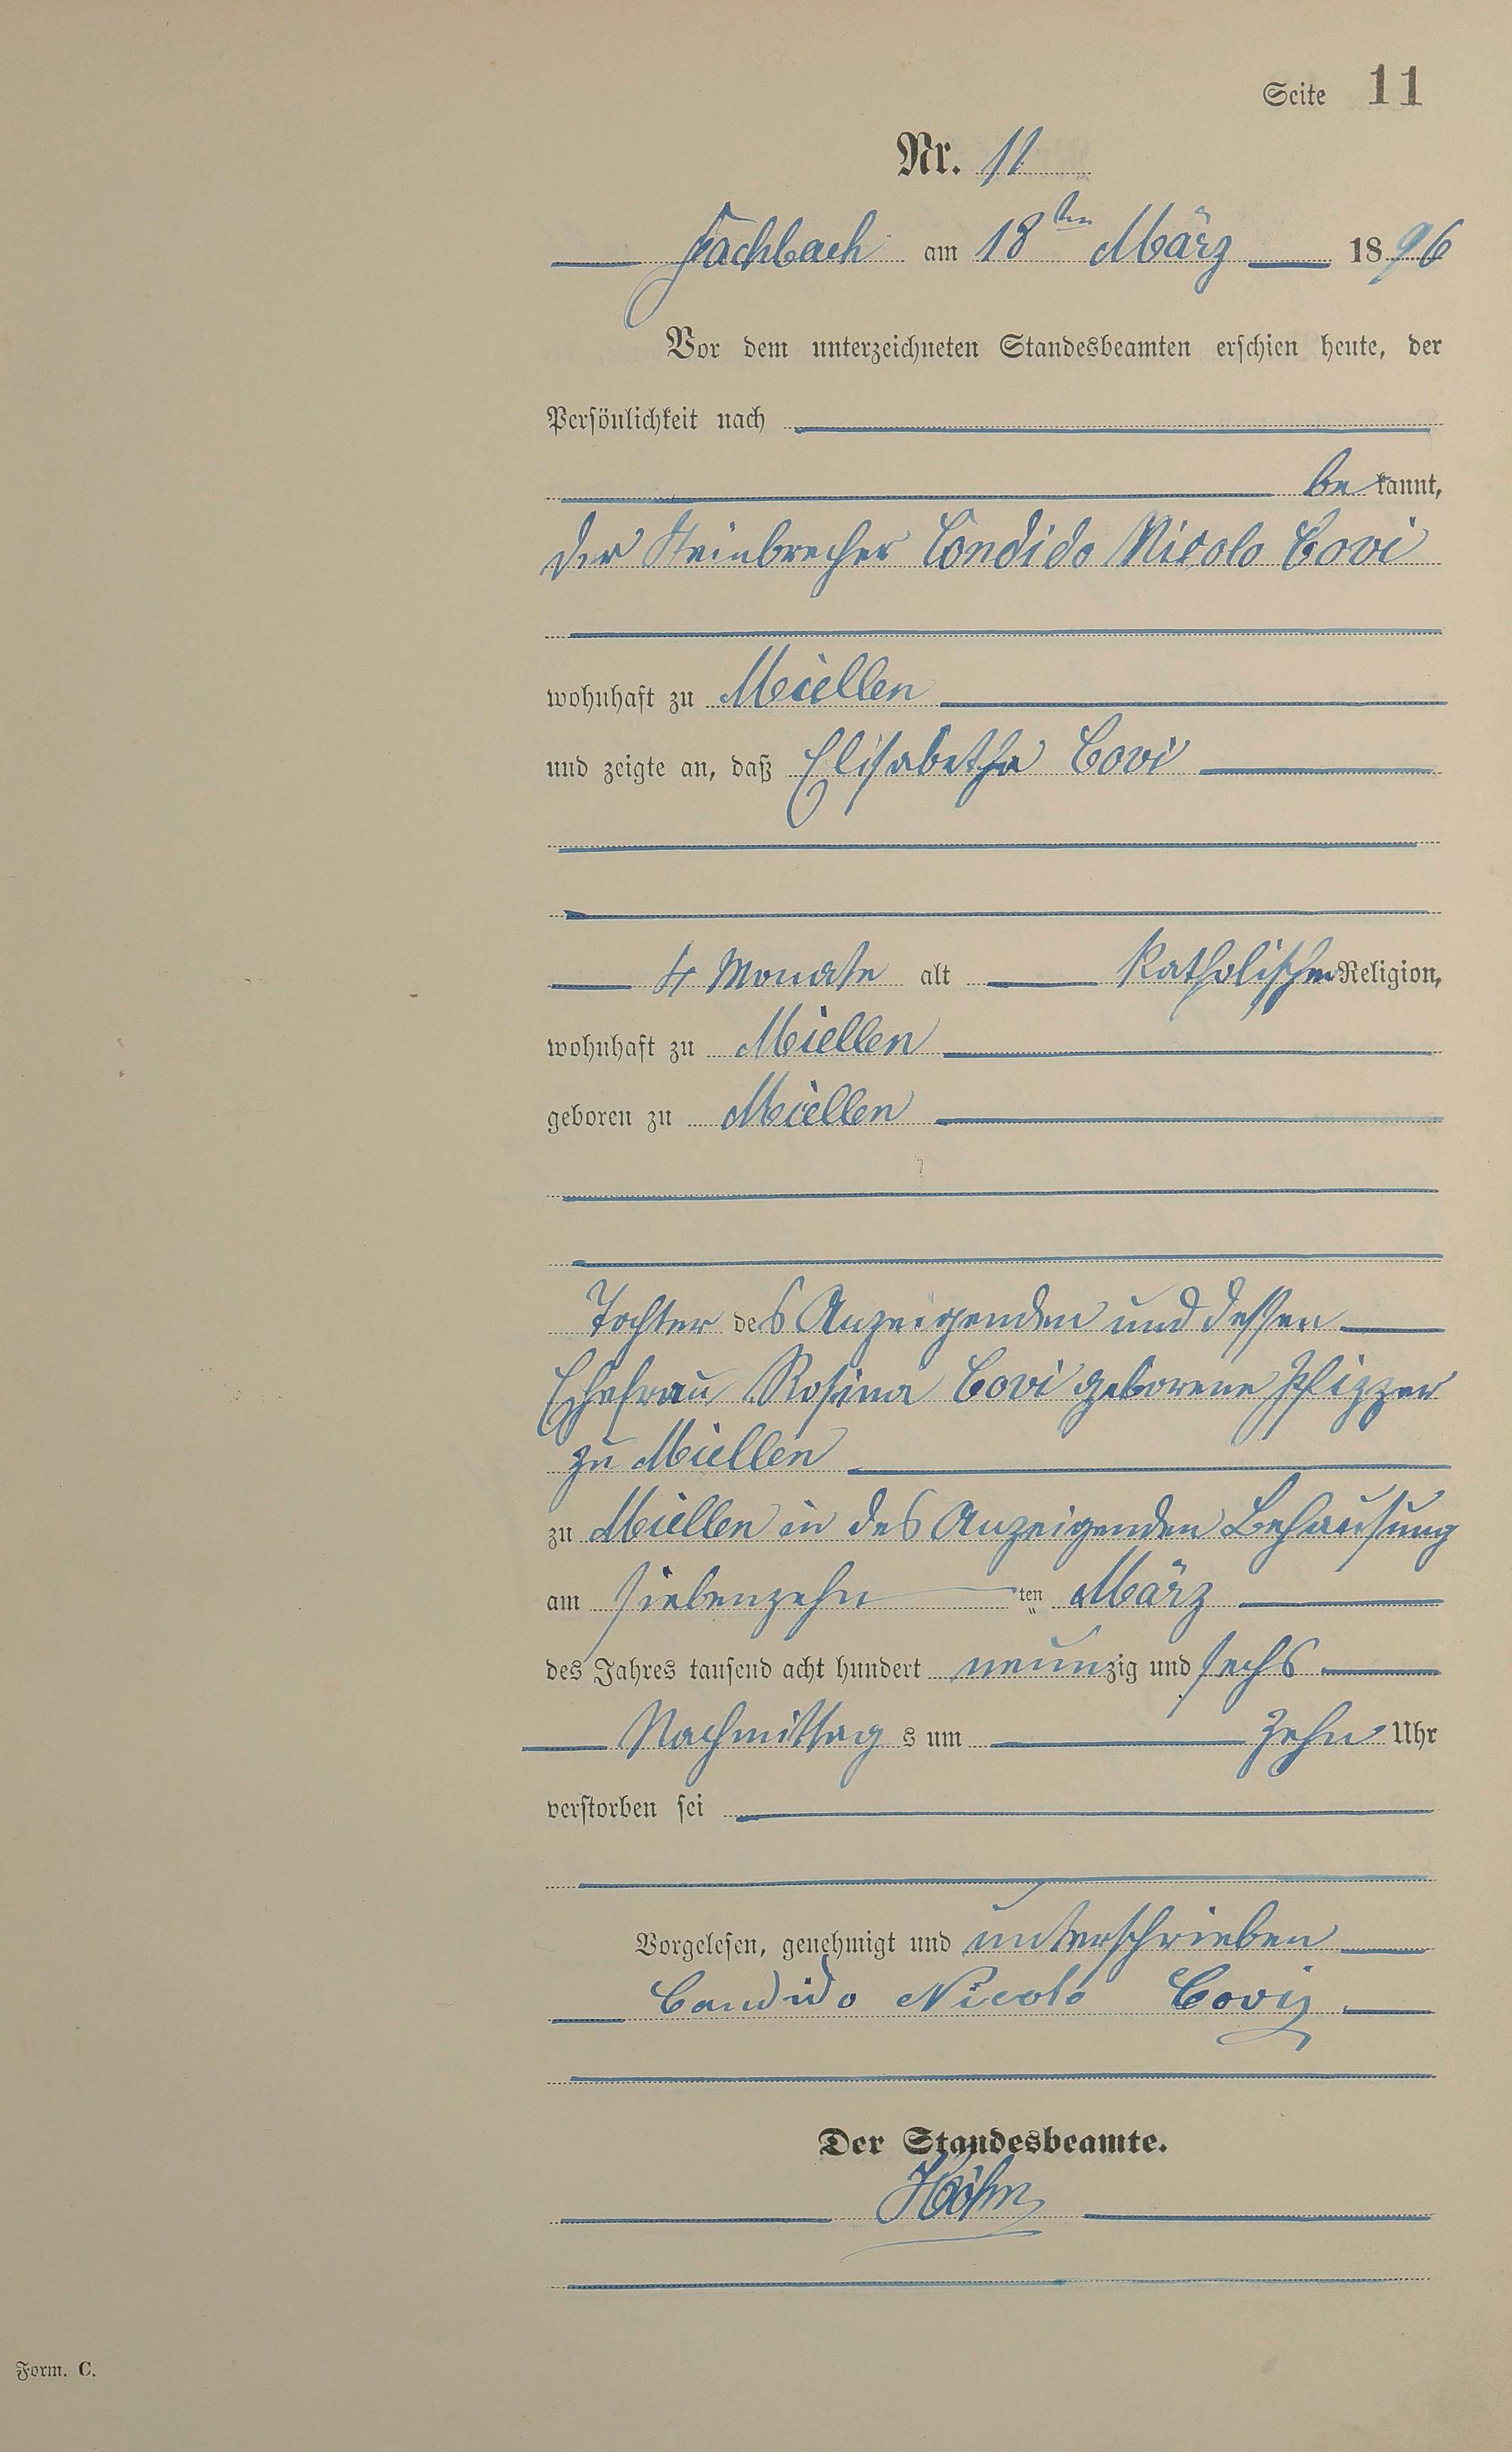 Seite 11
Nr. 11
Fachbach am 18ten März 1896
Vor dem unterzeichneten Standesbeamten erschien heute, der
Persönlichkeit nach
bekannt,
der Steinbrecher Condido Nicolo Covi
wohnhaft zu Miellen
und zeigte an, daß Elisabetha Covi
4 Monate alt katholischer Religion,
wohnhaft zu Miellen
geboren zu Miellen
Tochter des Anzeigenden und dessen
Ehefrau Rosina Covi geborene Pfizzer
zu Miellen
zu Miellen in des Anzeigenden Behausung
am siebenzehnten März
des Jahres tausend acht hundert neunzig und sechs
Nachmittags um zehn Uhr
verstorben sei
Vorgelesen, genehmigt und unterschrieben
Candido Nicolo Covi
Der Standesbeamte.
Höhn
Form. C.